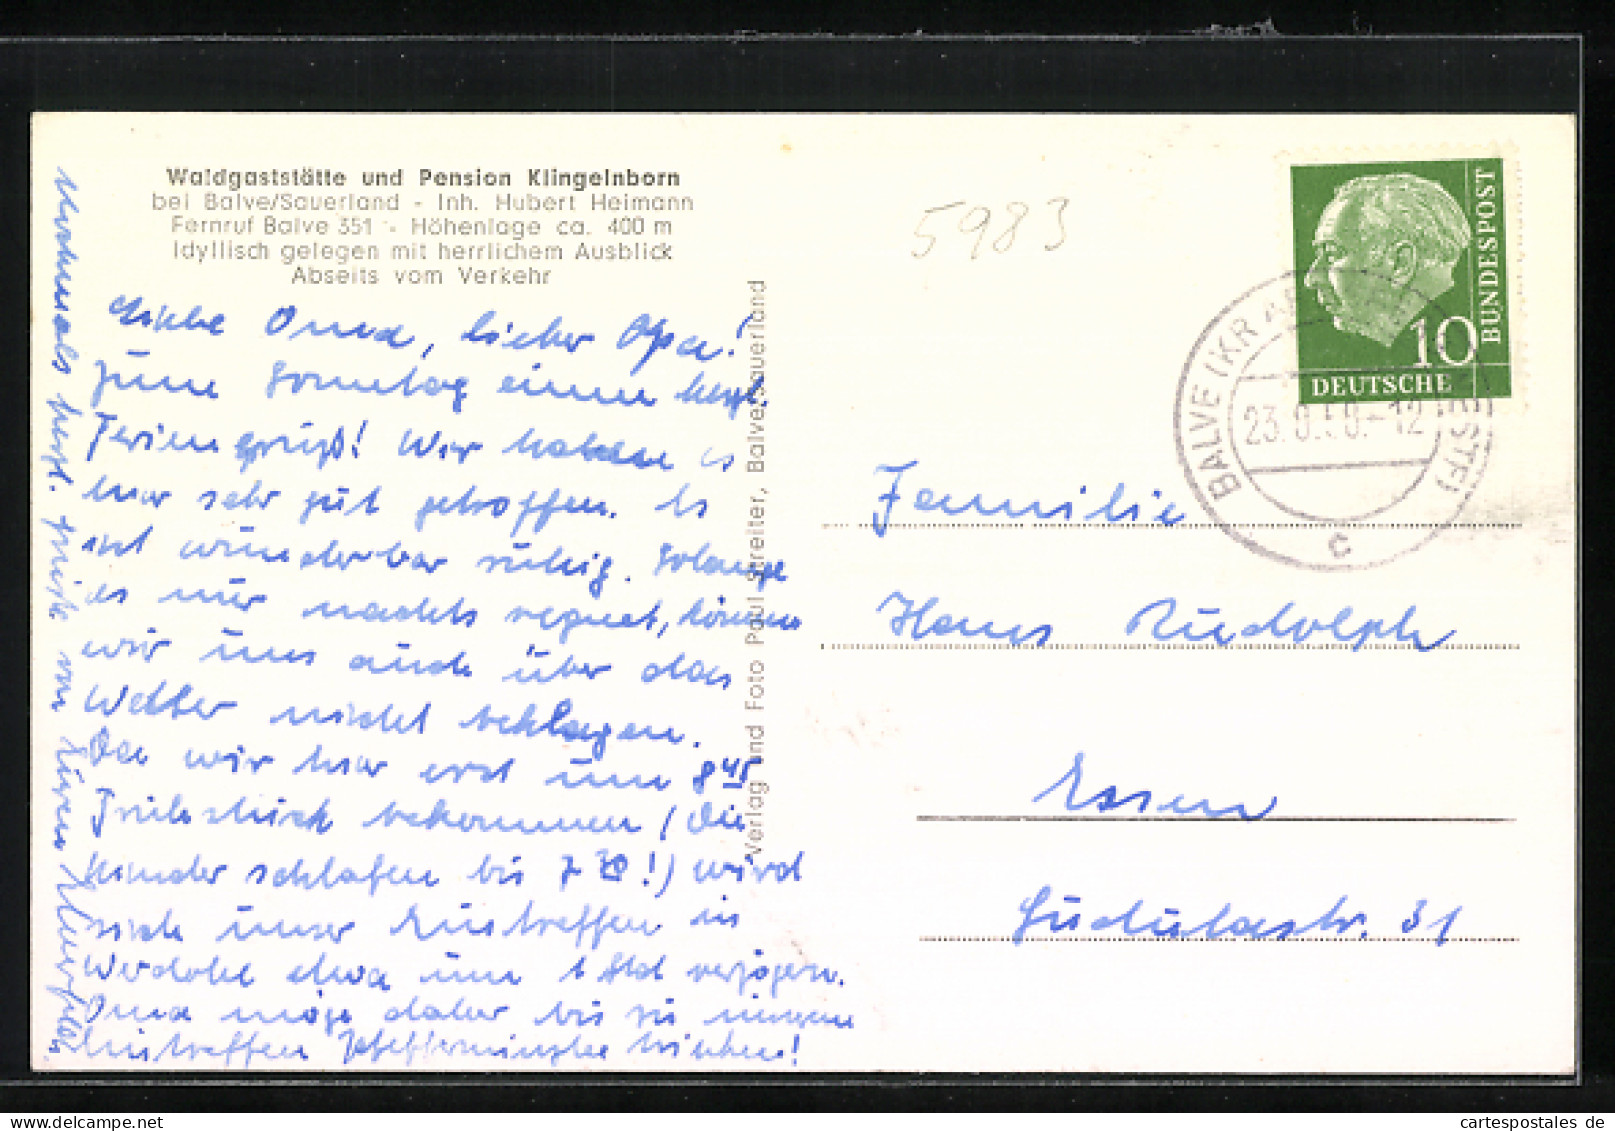 Waldgaststätte und Pension Klingelnborn
bei Balve/Sauerland - Inh. Hubert Heimann
Fernruf Balve 351 - Höhenlage ca. 400 m
Idyllisch gelegen mit herrlichem Ausblick
Abseits vom Verkehr
Liebe Oma, lieber Opa!
Zum Sonntag einen herzl.
Feriengruß! Wir haben es
hier sehr gut getroffen. Es
ist wunderbar ruhig. Solange
es nur nachts regnet, können
wir uns auch über das
Wetter nicht beklagen.
Da wir hier erst um 8 45
Frühstück bekommen (die
Kinder schlafen bis 7 30!) wird
sich unser Eintreffen in
Werdohl etwa um 1 Std verzögern.
Oma möge daher bis zu unserem
Eintreffen Pfefferminztee trinken!
Nochmals herzl. Grüße von Euren
Verlag und Foto Paul Streiter, Balve/Sauerland
5983
DEUTSCHE
BUNDESPOST
10
BALVE (KR A
STF)
c
Familie
Hans Rudolph
Essen
Gudulastr. 31
cartespostales de